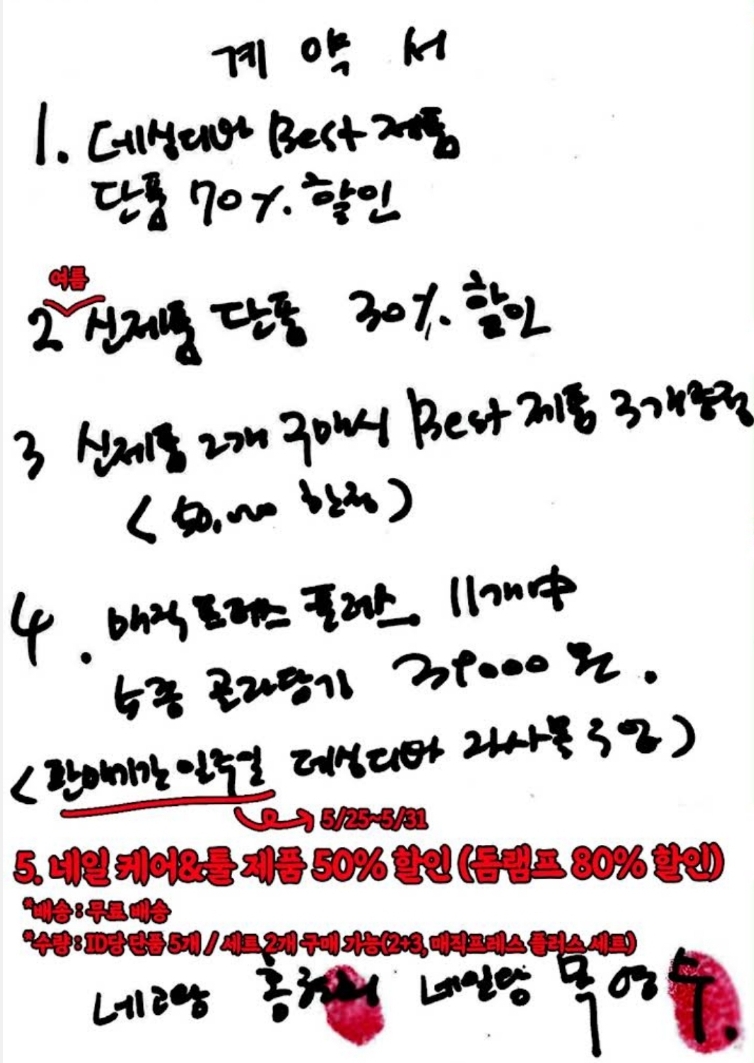 계약서
1. 데싱디바 Best 제품
단품 70%. 할인
여름
2 신제품 단품 30%. 할인
3 신제품 2개 구매시 Best 제품 3개 증정
(50,000 한정)
4. 매직프레스 플러스 11개中
4종 골라담기 39000원.
(판매기간 일주일 데싱디바 자사몰 only)
5/25~5/31
5. 네일 케어&툴 제품 50% 할인 (돔램프 80% 할인)
*배송 : 무료 배송
*수량 : ID당 단품 5개 / 세트 2개 구매 가능(2+3, 매직프레스 플러스 세트)
네고왕 홍현희 네일왕 목영수.